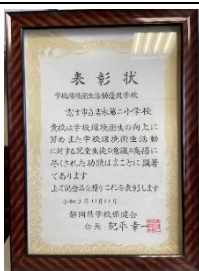 表彰状
学校環境衛生活動優良学校
富士市立吉永第二小学校
貴校は学校環境衛生の向上に
努めまた学校環境衛生活動
に対する児童生徒の意識の高揚に
尽くされた功績はまことに顕著
であります
よって記念品を贈りこれを表彰します
令和3年11月11日
静岡県学校保健会
会長 紀平幸一